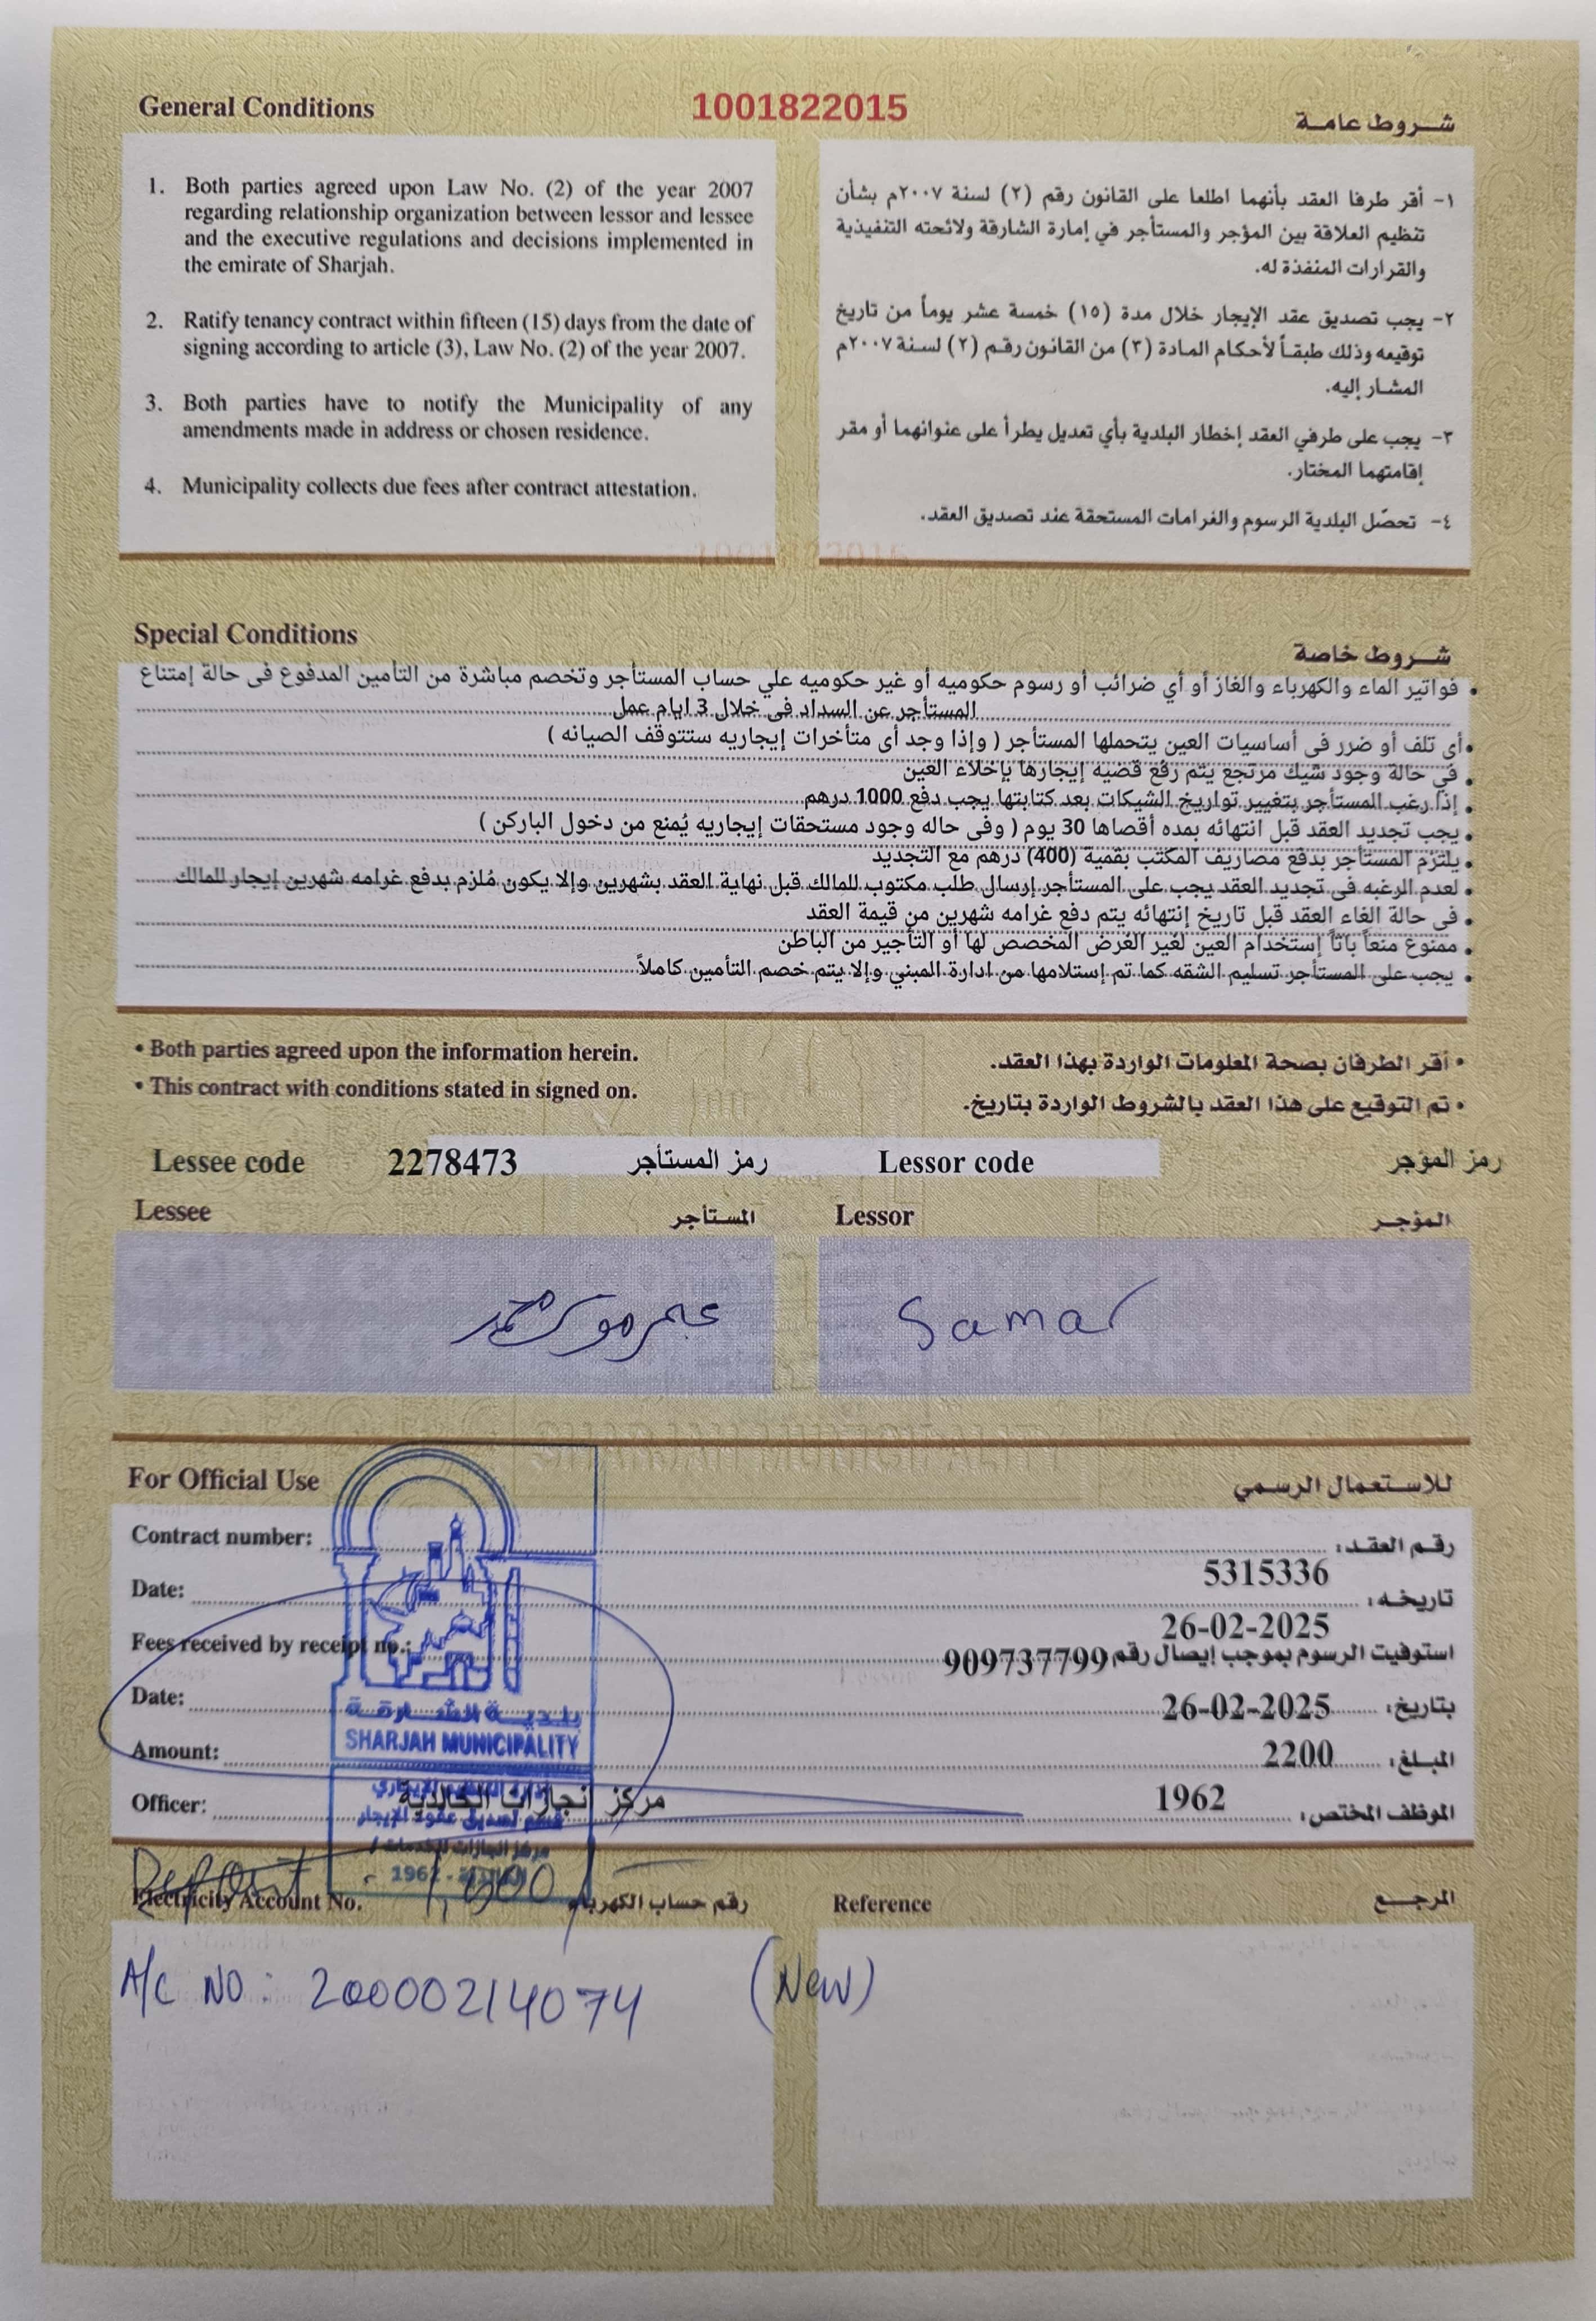 General Conditions
1001822015
شروط عامة
1. Both parties agreed upon Law No. (2) of the year 2007
regarding relationship organization between lessor and lessee
and the executive regulations and decisions implemented in
the emirate of Sharjah.
2. Ratify tenancy contract within fifteen (15) days from the date of
signing according to article (3), Law No. (2) of the year 2007.
3. Both parties have to notify the Municipality of any
amendments made in address or chosen residence.
4. Municipality collects due fees after contract attestation.
١- أقر طرفا العقد بأنهما اطلعا على القانون رقم (٢) لسنة ٢٠٠٧م بشأن
تنظيم العلاقة بين المؤجر والمستأجر في إمارة الشارقة ولائحته التنفيذية
والقرارات المنفذة له.
٢- يجب تصديق عقد الإيجار خلال مدة (١٥) خمسة عشر يوماً من تاريخ
توقيعه وذلك طبقاً لأحكام المادة (٣) من القانون رقم (٢) لسنة ٢٠٠٧م
المشار إليه.
٣- يجب على طرفي العقد إخطار البلدية بأي تعديل يطرأ على عنوانهما أو مقر
إقامتهما المختار.
٤- تحصّل البلدية الرسوم والغرامات المستحقة عند تصديق العقد.
Special Conditions
شروط خاصة
• فواتير الماء والكهرباء والغاز أو أي ضرائب أو رسوم حكوميه أو غير حكوميه علي حساب المستأجر وتخصم مباشرة من التأمين المدفوع فى حالة إمتناع
المستأجر عن السداد فى خلال 3 ايام عمل
• أى تلف أو ضرر فى أساسيات العين يتحملها المستأجر ( وإذا وجد أى متأخرات إيجاريه ستتوقف الصيانه )
• في حالة وجود شيك مرتجع يتم رفع قضيه إيجارها بإخلاء العين
• إذا رغب المستأجر بتغيير تواريخ الشيكات بعد كتابتها يجب دفع 1000 درهم
• يجب تجديد العقد قبل انتهائه بمده أقصاها 30 يوم ( وفى حاله وجود مستحقات إيجاريه يُمنع من دخول الباركن )
• يلتزم المستأجر بدفع مصاريف المكتب بقمية (400) درهم مع التجديد
• لعدم الرغبه فى تجديد العقد يجب على المستأجر إرسال طلب مكتوب للمالك قبل نهاية العقد بشهرين وإلا يكون مُلزم بدفع غرامه شهرين إيجار للمالك
• فى حالة الغاء العقد قبل تاريخ إنتهائه يتم دفع غرامه شهرين من قيمة العقد
• ممنوع منعاً باتاً إستخدام العين لغير الغرض المخصص لها أو التأجير من الباطن
• يجب على المستأجر تسليم الشقه كما تم إستلامها من ادارة المبني وإلا يتم خصم التأمين كاملاً
• Both parties agreed upon the information herein.
• أقر الطرفان بصحة المعلومات الواردة بهذا العقد.
• This contract with conditions stated in signed on.
• تم التوقيع على هذا العقد بالشروط الواردة بتاريخ.
Lessee code 2278473 رمز المستأجر Lessor code رمز المؤجر
Lessee المستأجر Lessor المؤجر
Samar
SHARJAH MUNICIPALITY
For Official Use
للاستعمال الرسمي
Contract number: رقم العقد:
5315336
Date: تاريخه:
26-02-2025
Fees received by receipt no.: استوفيت الرسوم بموجب إيصال رقم 909737799
Date: بتاريخ: 26-02-2025
بلدية الشارقة
SHARJAH MUNICIPALITY
Amount: المبلغ: 2200
Officer: مركز انجازات الخالدية الموظف المختص: 1962
قسم تصديق عقود الإيجار
1962
Deposit 1,000/-
Electricity Account No. رقم حساب الكهرباء
Reference المرجع
A/C NO: 20000214074 (New)